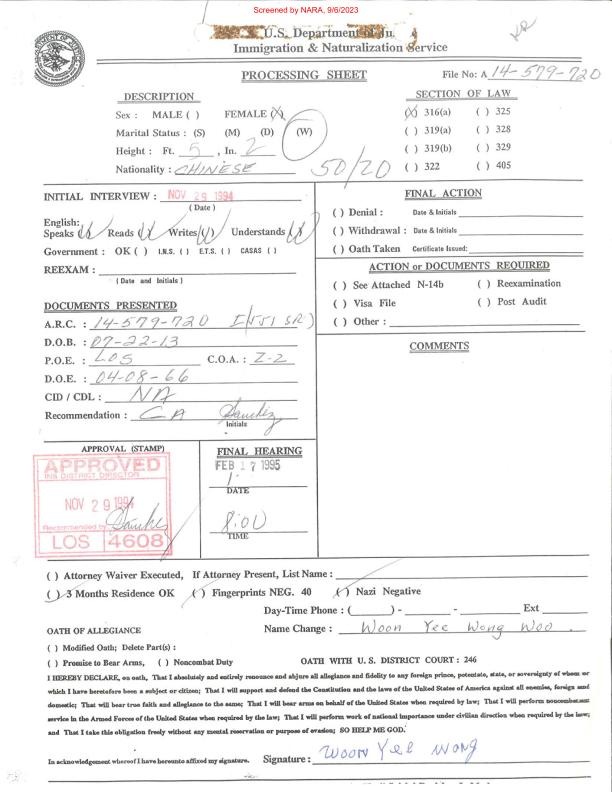 Screened by NARA, 9/6/2023
U.S. Department of Ju
Immigration & Naturalization Service
PROCESSING SHEET
File No: A 14-579-720
DESCRIPTION
Sex : MALE ( ) FEMALE (X)
Marital Status : (S) (M) (D) (W)
Height : Ft. 5 , In. 2
Nationality : CHINESE
50/20
SECTION OF LAW
(X) 316(a) ( ) 325
( ) 319(a) ( ) 328
( ) 319(b) ( ) 329
( ) 322 ( ) 405
INITIAL INTERVIEW : NOV 29 1994
( Date )
English:
Speaks (✓) Reads (✓) Writes (✓) Understands (✓)
Government : OK ( ) I.N.S. ( ) E.T.S. ( ) CASAS ( )
REEXAM :
( Date and Initials )
FINAL ACTION
( ) Denial : Date & Initials
( ) Withdrawal : Date & Initials
( ) Oath Taken Certificate Issued:
ACTION or DOCUMENTS REQUIRED
( ) See Attached N-14b ( ) Reexamination
( ) Visa File ( ) Post Audit
( ) Other :
COMMENTS
DOCUMENTS PRESENTED
A.R.C. : 14-579-720 I-551 SR)
D.O.B. : 07-22-13
P.O.E. : LOS C.O.A. : Z-2
D.O.E. : 04-08-66
CID / CDL : NA
Recommendation : CA Sanchez
Initials
APPROVAL (STAMP)
APPROVED
INS DISTRICT DIRECTOR
NOV 29 1994
Recommended by Sanchez
LOS 4608
FINAL HEARING
FEB 17 1995
DATE
8:00
TIME
( ) Attorney Waiver Executed, If Attorney Present, List Name :
(✓) 3 Months Residence OK (✓) Fingerprints NEG. 40 (✓) Nazi Negative
Day-Time Phone : ( ) - - Ext
OATH OF ALLEGIANCE
Name Change : Woon Yee Wong Woo .
( ) Modified Oath; Delete Part(s) :
( ) Promise to Bear Arms, ( ) Noncombat Duty
OATH WITH U. S. DISTRICT COURT : 246
I HEREBY DECLARE, on oath, That I absolutely and entirely renounce and abjure all allegiance and fidelity to any foreign prince, potentate, state, or sovereignty of whom or
which I have heretofore been a subject or citizen; That I will support and defend the Constitution and the laws of the United States of America against all enemies, foreign and
domestic; That will bear true faith and allegiance to the same; That I will bear arms on behalf of the United States when required by law; That I will perform noncombatant
service in the Armed Forces of the United States when required by the law; That I will perform work of national importance under civilian direction when required by the law;
and That I take this obligation freely without any mental reservation or purpose of evasion; SO HELP ME GOD.
In acknowledgement whereof I have hereunto affixed my signature. Signature : WOON YEE WONG